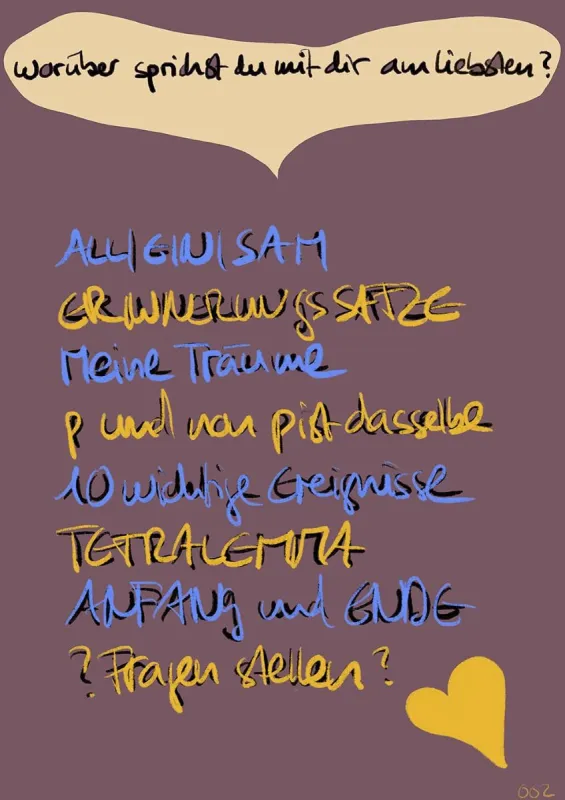 worüber sprichst du mit dir am liebsten?
ALL|EIN|SAM
ERINNERUNgSSÄTZE
Meine Träume
p und non p ist dasselbe
10 wichtige Ereignisse
TETRALEMMA
ANFANg und ENDE
? Fragen stellen?
002